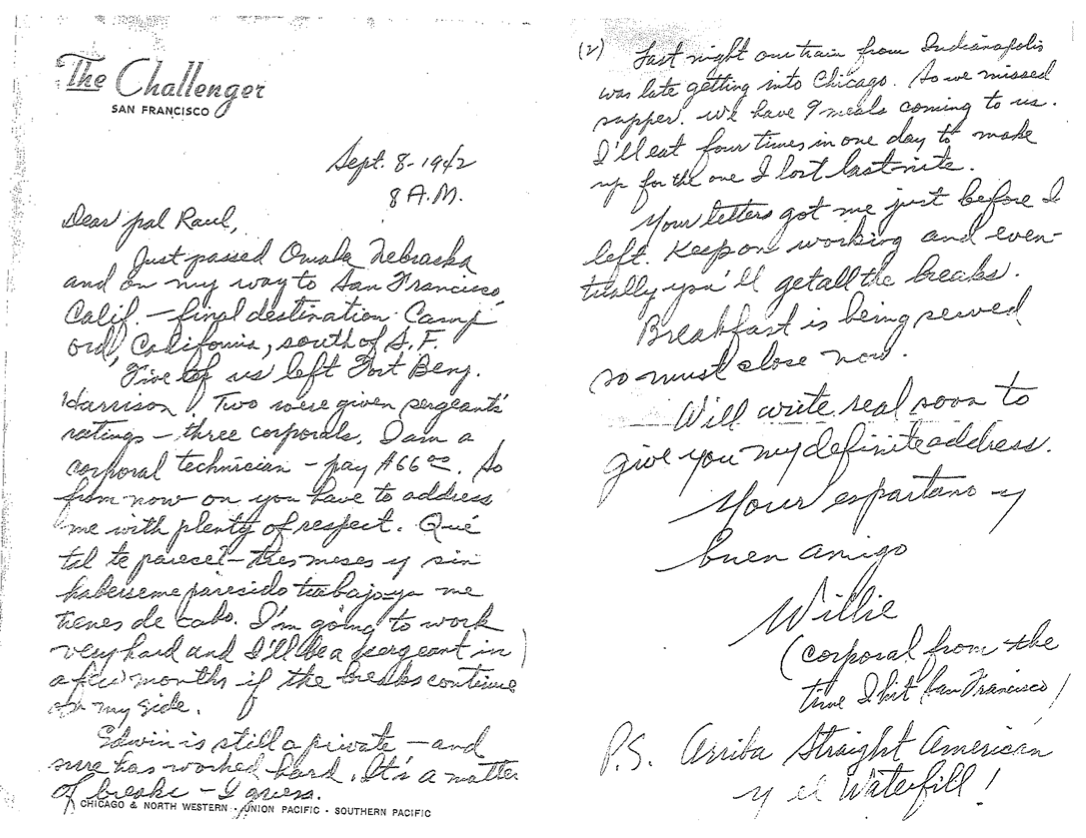 The Challenger
SAN FRANCISCO
Sept. 8-1942
8 A.M.
Dear pal Raul,
Just passed Omaha Nebraska
and on my way to San Francisco
Calif. - final destination Camp
Ord, California, south of S.F.
Five of us left Fort Benj.
Harrison. Two were given sergeant's
ratings - three corporals. I am a
corporal technician - pay $66.00. So
from now on you have to address
me with plenty of respect. Qué
tal te parece? - tres meses y sin
haberseme parecido trabajo ya me
tienes de cabo. I'm going to work
very hard and I'll be a sergeant in
a few months if the breaks continue
on my side.
Edwin is still a private - and
sure has worked hard. It's a matter
of breaks - I guess.
CHICAGO & NORTH WESTERN - UNION PACIFIC - SOUTHERN PACIFIC
(2) Last night our train from Indianapolis
was late getting into Chicago. So we missed
supper. We have 9 meals coming to us.
I'll eat four times in one day to make
up for the one I lost last nite.
Your letters got me just before I
left. Keep on working and even-
tually you'll get all the breaks.
Breakfast is being served
so must close now.
Will write real soon to
give you my definite address.
Your espartano y
buen amigo
Willie
(corporal from the
time I hit San Francisco)
P.S. Arriba Straight American
y el Waterfill!